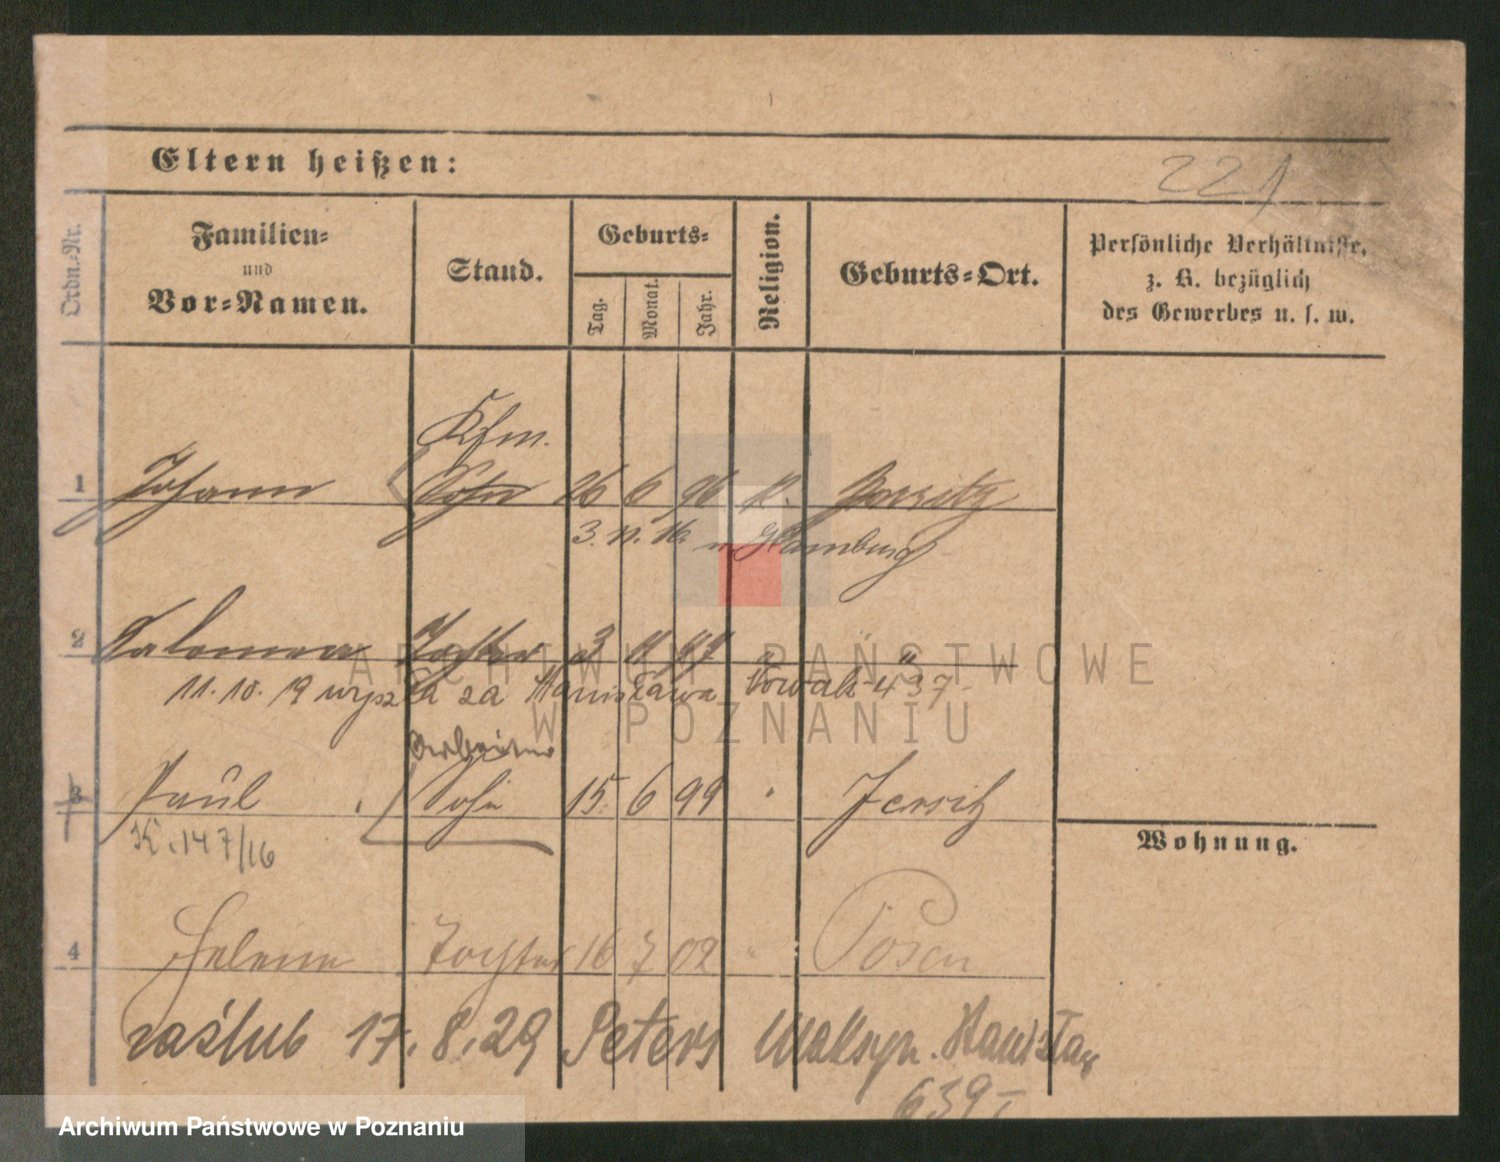 Eltern heißen:
221
Ordn.-Nr.
Familien-
und
Vor-Namen.
Stand.
Geburts-
Tag.
Monat.
Jahr.
Religion.
Geburts-Ort.
Persönliche Verhältnisse,
z. B. bezüglich
des Gewerbes u. s. w.
Kfm.
1 Johann Sohn 26 6 96 k.
3. 11. 16. n. Hamburg
2 Salomea Tochter 3 11 97 " "
11. 10. 19 wyszła za Stanisława Nowak 437
Arbeiter
3 Paul Sohn 15. 6 99 " Jersitz
K. 147/16
Wohnung.
4 Helene Tochter 16 7 02 " Posen
zaślub 17. 8. 29 Peters Maksym. Stanisław
639
ARCHIWUM PAŃSTWOWE
W POZNANIU
Archiwum Państwowe w Poznaniu